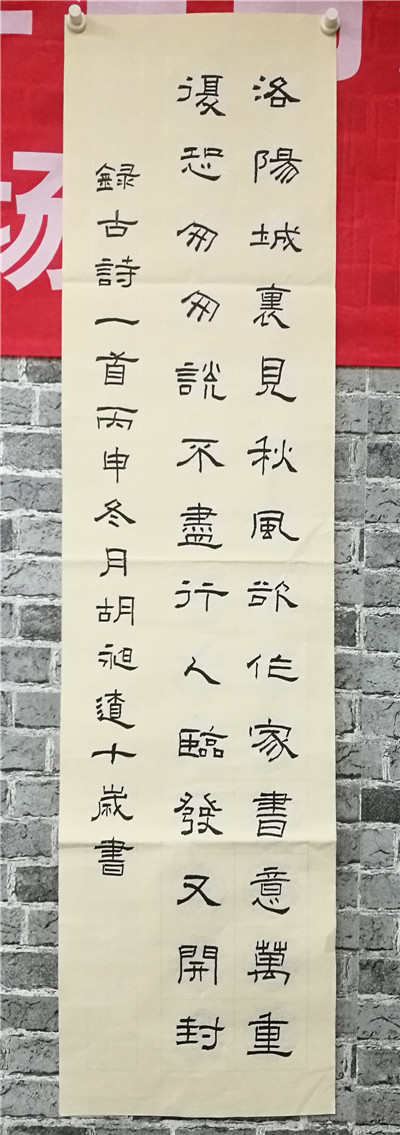 洛陽城裏見秋風欲作家書意萬重
復恐匆匆說不盡行人臨發又開封
錄古詩一首丙申冬月胡昶逵十歲書
场